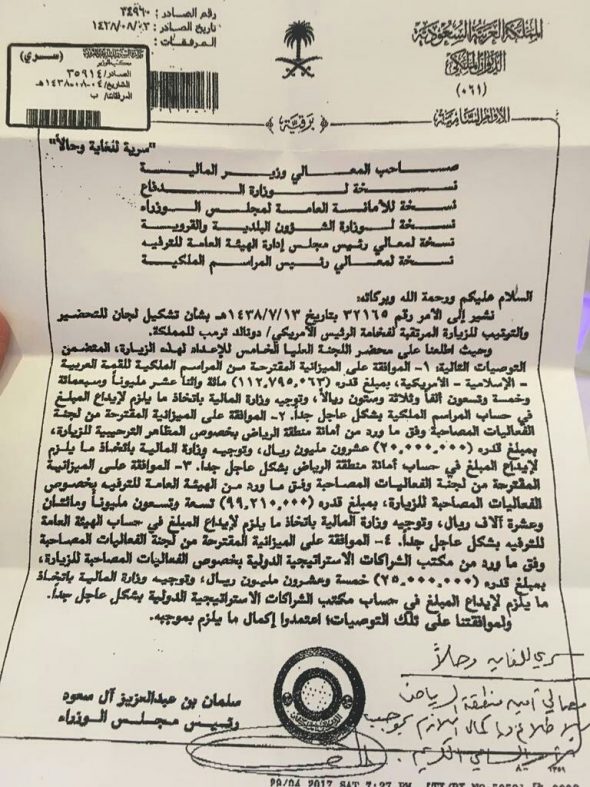 المملكة العربية السعودية
الديوان الملكي
(٠٦١)
الأوامر السامية
برقية
رقم الصادر : ٣٤٩٦٠
تاريخ الصادر : ١٤٣٨/٠٨/٠٣
المرفقات :
(سري)
الصادر/ ٣٥٩١٤
التاريخ/ ٠٤-٠٨-١٤٣٨هـ
المرفقات/ ب
"سرية للغاية وحالاً"
صاحب المعالي وزير المالية
نسخة لوزارة الدفاع
نسخة للأمانة العامة لمجلس الوزراء
نسخة لوزارة الشؤون البلدية والقروية
نسخة لمعالي رئيس مجلس إدارة الهيئة العامة للترفيه
نسخة لمعالي رئيس المراسم الملكية
السلام عليكم ورحمة الله وبركاته:
نشير إلى الأمر رقم ٣٢١٦٥ بتاريخ ١٤٣٨/٧/١٣هـ بشأن تشكيل لجان للتحضير
والترتيب للزيارة المرتقبة لفخامة الرئيس الأمريكي/ دونالد ترمب للمملكة.
وحيث اطلعنا على محضر اللجنة العليا الخامس للإعداد لهذه الزيارة، المتضمن
التوصيات التالية: ١- الموافقة على الميزانية المقترحة من المراسم الملكية للقمة العربية
- الإسلامية - الأمريكية، بمبلغ قدره (١١٢,٧٩٥,٠٦٣) مائة واثنا عشر مليوناً وسبعمائة
وخمسة وتسعون ألفاً وثلاثة وستون ريالاً، وتوجيه وزارة المالية باتخاذ ما يلزم لإيداع المبلغ
في حساب المراسم الملكية بشكل عاجل جداً. ٢- الموافقة على الميزانية المقترحة من لجنة
الفعاليات المصاحبة وفق ما ورد من أمانة منطقة الرياض بخصوص المظاهر الترحيبية للزيارة،
بمبلغ قدره (٢٠,٠٠٠,٠٠٠) عشرون مليون ريال، وتوجيه وزارة المالية باتخاذ ما يلزم
لإيداع المبلغ في حساب أمانة منطقة الرياض بشكل عاجل جداً. ٣- الموافقة على الميزانية
المقترحة من لجنة الفعاليات المصاحبة وفق ما ورد من الهيئة العامة للترفيه بخصوص
الفعاليات المصاحبة للزيارة، بمبلغ قدره (٩٩,٢١٠,٠٠٠) تسعة وتسعون مليوناً ومائتان
وعشرة آلاف ريال، وتوجيه وزارة المالية باتخاذ ما يلزم لإيداع المبلغ في حساب الهيئة العامة
للترفيه بشكل عاجل جداً. ٤- الموافقة على الميزانية المقترحة من لجنة الفعاليات المصاحبة
وفق ما ورد من مكتب الشراكات الاستراتيجية الدولية بخصوص الفعاليات المصاحبة للزيارة،
بمبلغ قدره (٢٥,٠٠٠,٠٠٠) خمسة وعشرون مليون ريال، وتوجيه وزارة المالية باتخاذ
ما يلزم لإيداع المبلغ في حساب مكتب الشراكات الاستراتيجية الدولية بشكل عاجل جداً.
ولموافقتنا على تلك التوصيات؛ اعتمدوا إكمال ما يلزم بموجبه.
سلمان بن عبدالعزيز آل سعود
رئيس مجلس الوزراء
سري للغاية وحالاً
معالي أمين منطقة الرياض
للاطلاع وإكمال اللازم بموجب
الأمر السامي الكريم
29/04 2017 SAT 7:27 PM